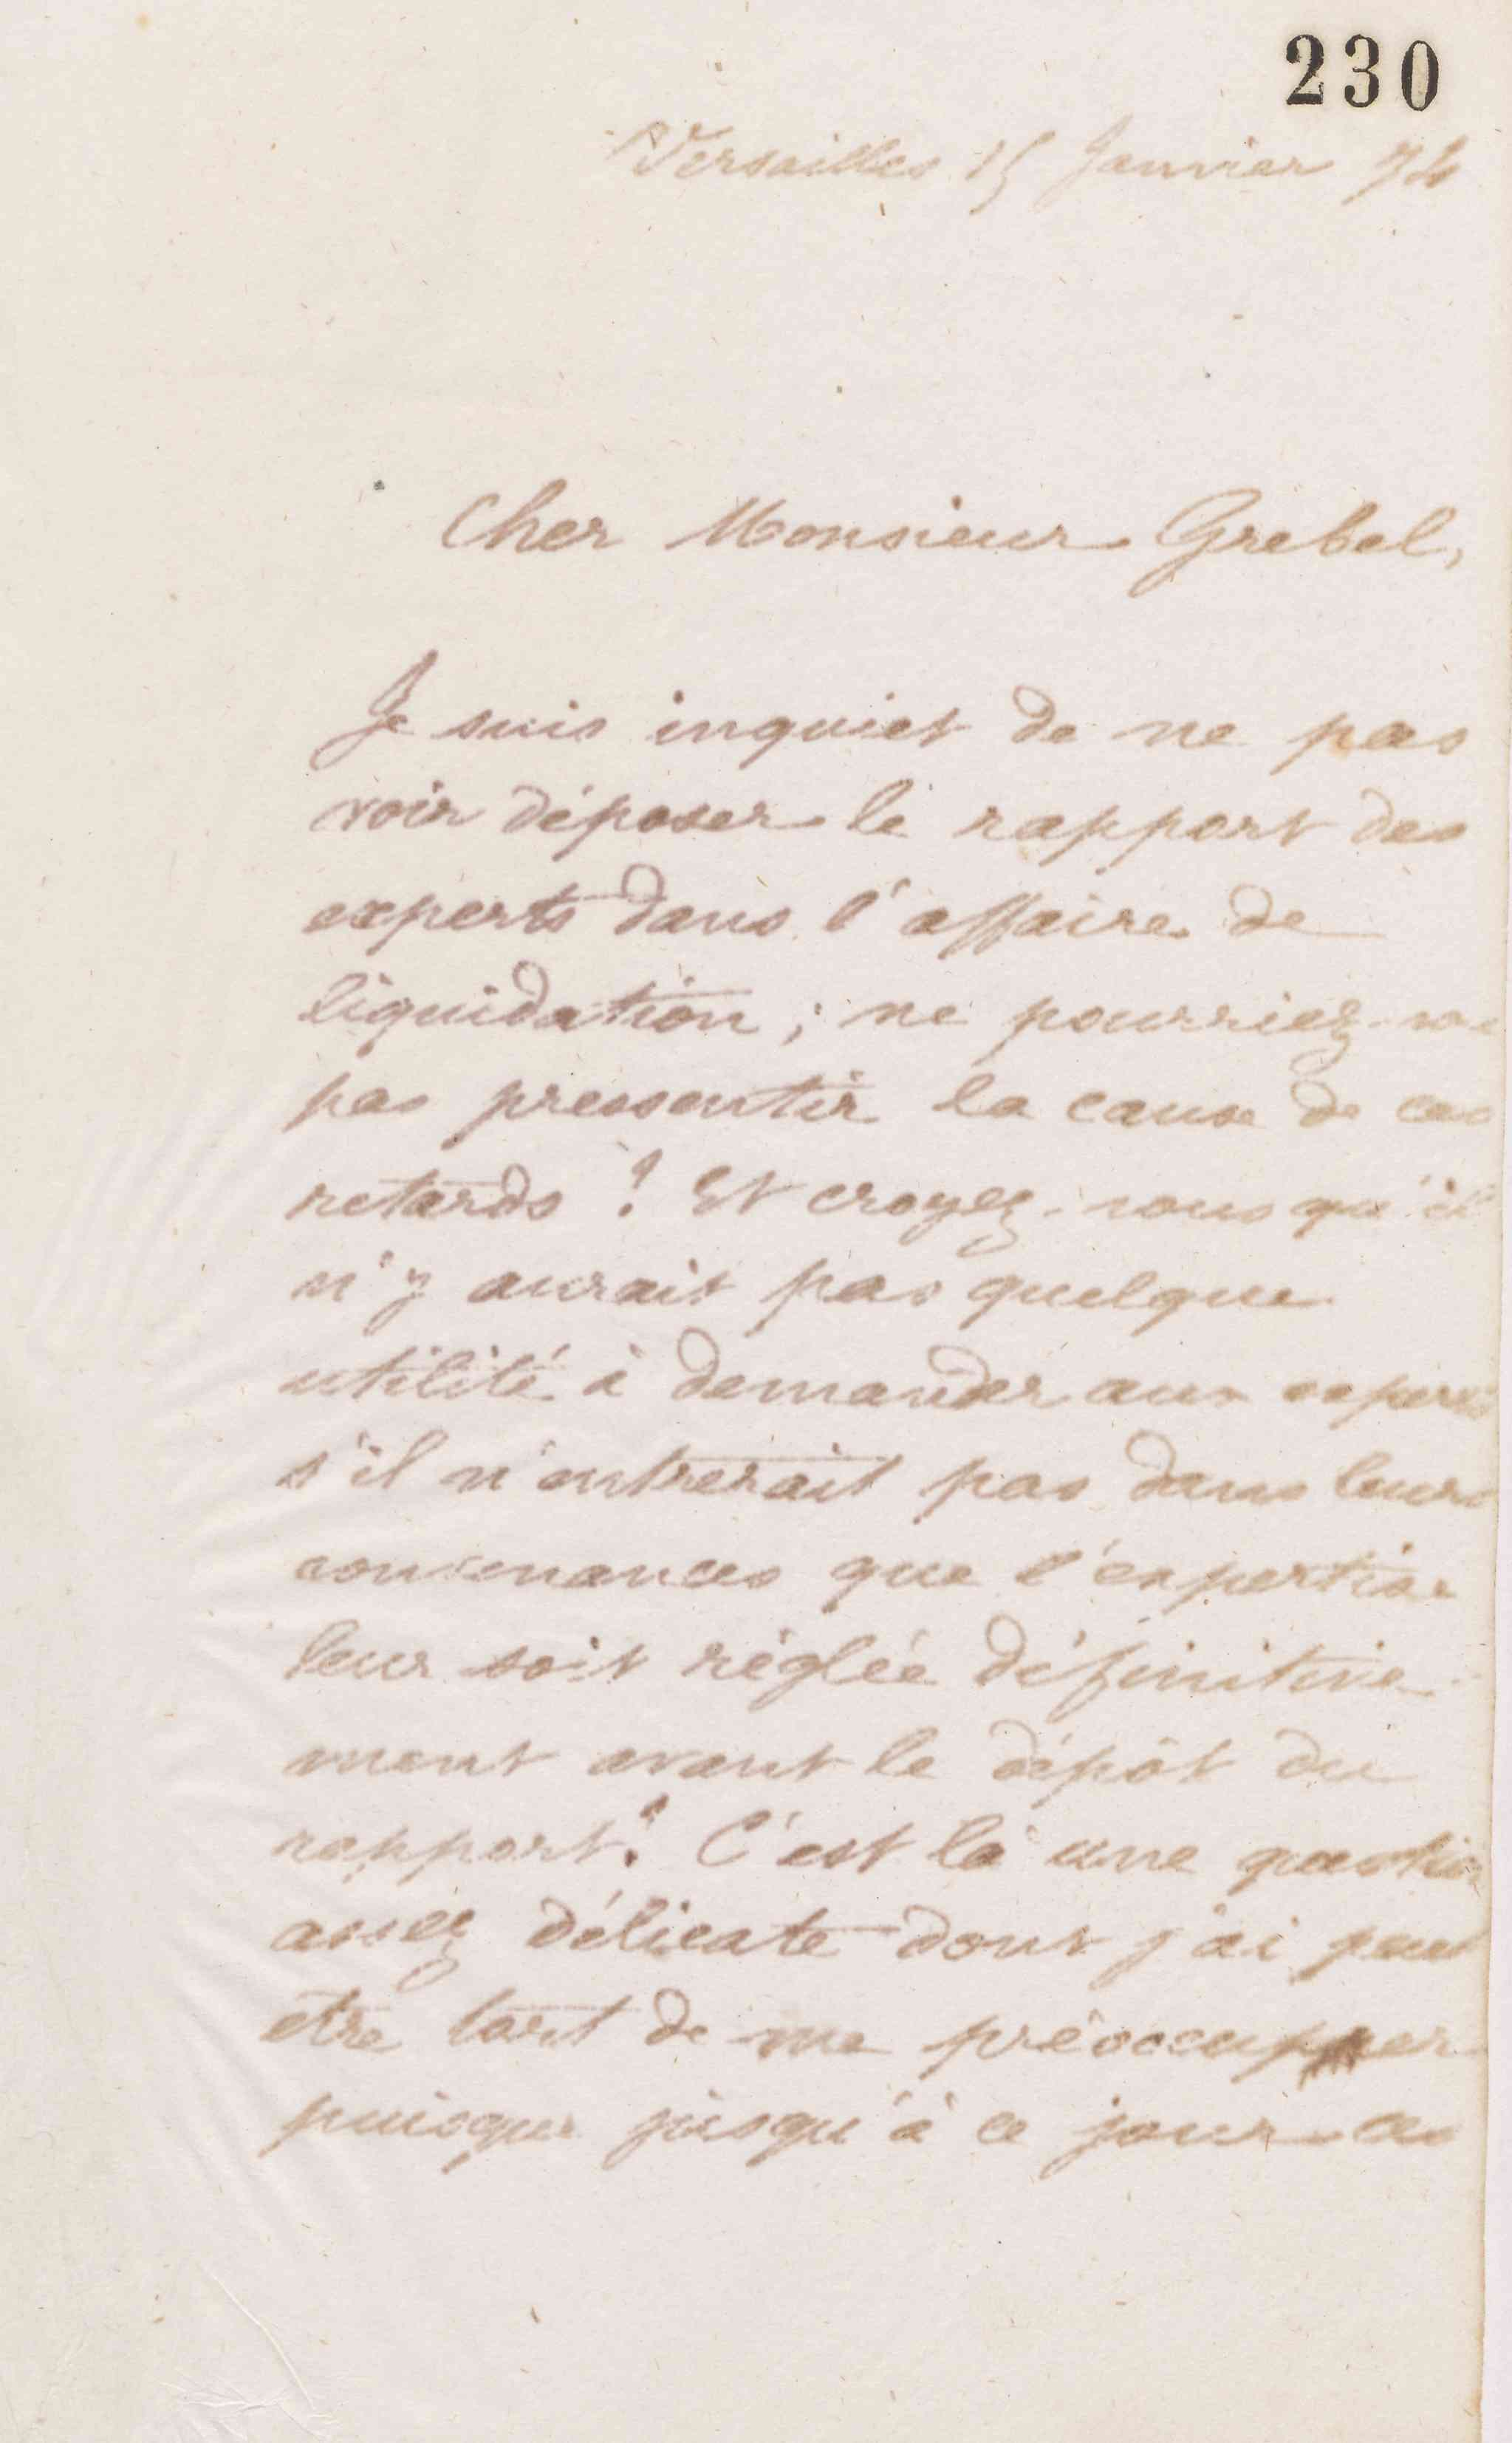 230
Versailles 15 Janvier 74
Cher Monsieur Grebel,
Je suis inquiet de ne pas
voir déposer le rapport des
experts dans l'affaire de
liquidation ; ne pourriez-vo
pas pressentir la cause de ces
retards ? Et croyez-vous qu'il
n'y aurait pas quelque
utilité à demander aux experts
s'il n'entrerait pas dans leurs
convenances que l'expertise
leur soit réglée définitive-
ment avant le dépôt du
rapport ? C'est là une question
assez délicate dont j'ai peut
être tort de me préoccupper
puisque jusqu'à ce jour ces